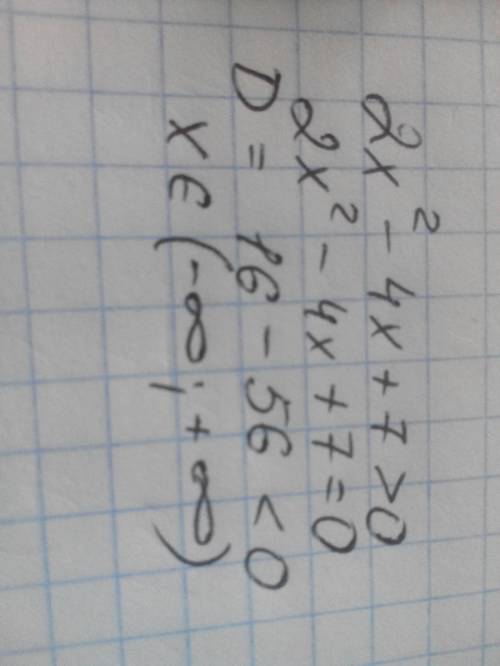 2x² - 4x + 7 > 0
2x² - 4x + 7 = 0
D = 16 - 56 < 0
x ∈ (-∞; +∞)